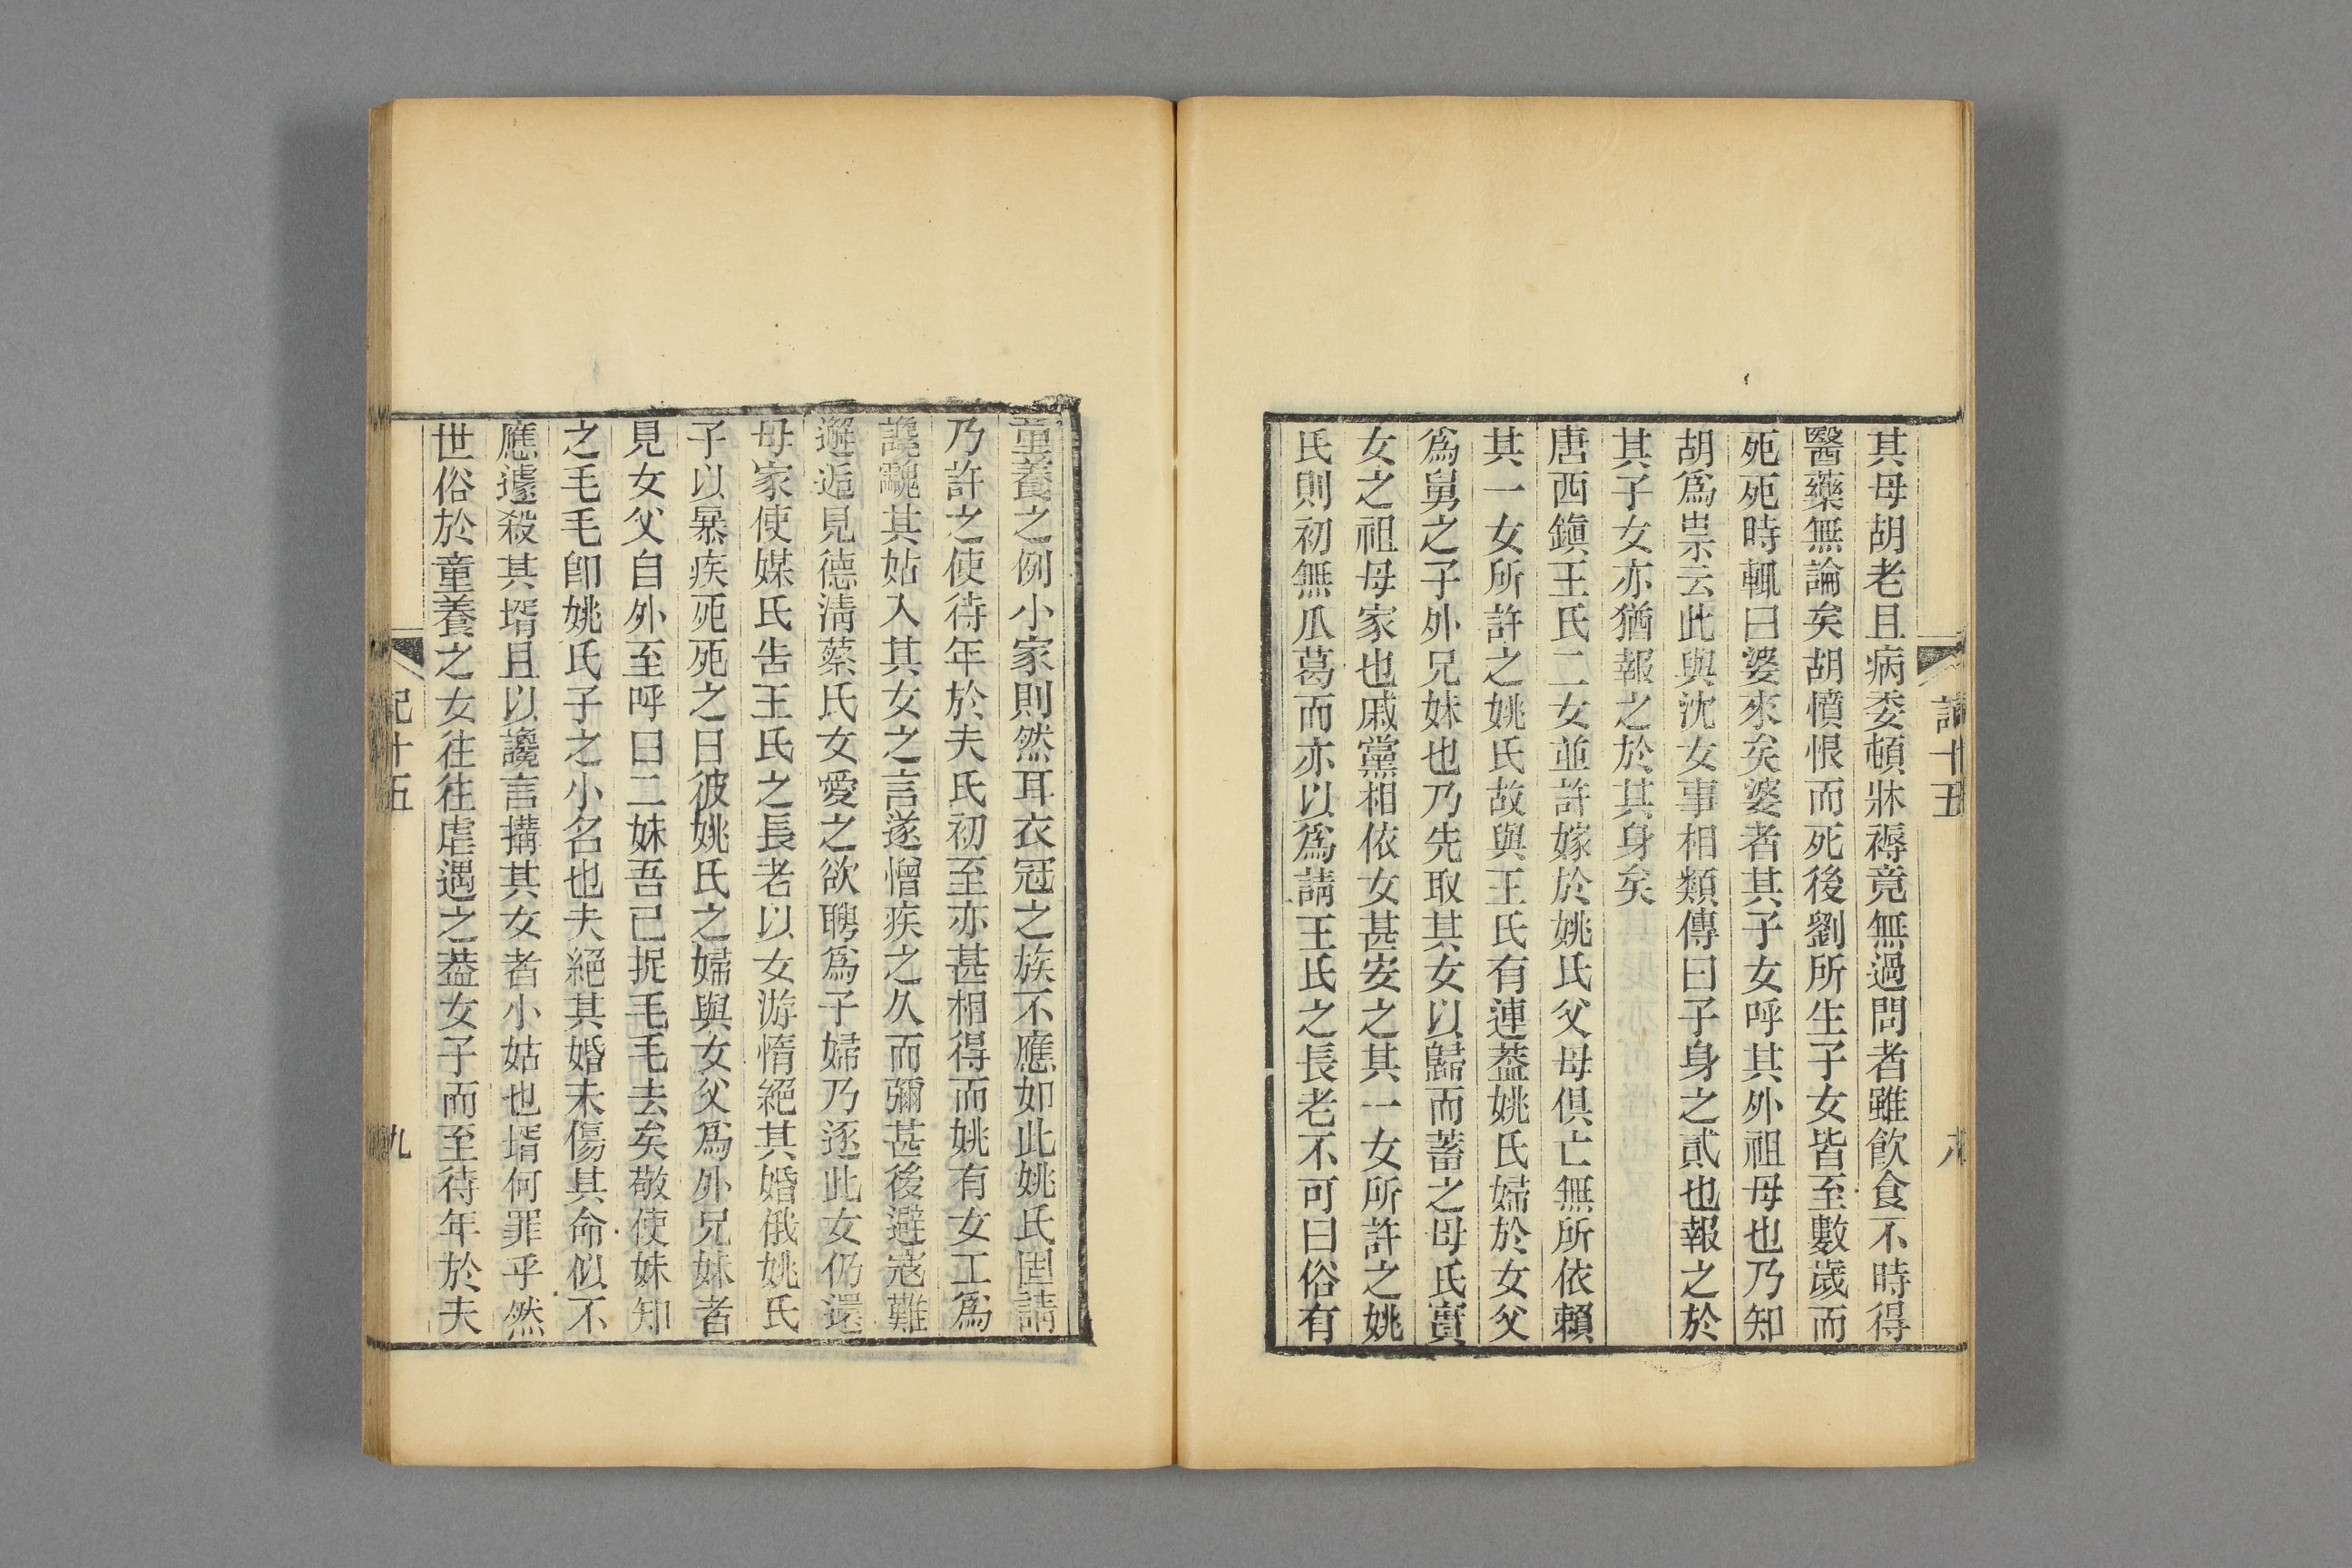 其母胡老且病委頓牀褥竟無過問者雖飲食不時得
醫藥無論矣胡憤恨而死後劉所生子女皆至數歲而
死死時輒曰婆來矣婆者其子女呼其外祖母也乃知
胡爲祟云此與沈女事相類傳曰子身之貳也報之於
其子女亦猶報之於其身矣
唐西鎭王氏二女並許嫁於姚氏父母俱亡無所依賴
其一女所許之姚氏故與王氏有連葢姚氏婦於女父
爲舅之子外兄妹也乃先取其女以歸而蓄之母氏實
女之祖母家也戚黨相依女甚安之其一女所許之姚
氏則初無瓜葛而亦以爲請王氏之長老不可曰俗有
十五
童養之例小家則然耳衣冠之族不應如此姚氏固請
乃許之使待年於夫氏初至亦甚相得而姚有女工爲
讒䚕其姑入其女之言遂憎疾之久而彌甚後避寇難
邂逅見德淸蔡氏女愛之欲聘爲子婦乃逐此女仍還
母家使媒氏吿王氏之長老以女游惰絕其婚俄姚氏
子以暴疾死死之日彼姚氏之婦與女父爲外兄妹者
見女父自外至呼曰二妹吾已捉毛毛去矣敬使妹知
之毛毛卽姚氏子之小名也夫絕其婚未傷其命似不
應遽殺其壻且以讒言搆其女者小姑也壻何罪乎然
世俗於童養之女往往虐遇之葢女子而至待年於夫
十五
九